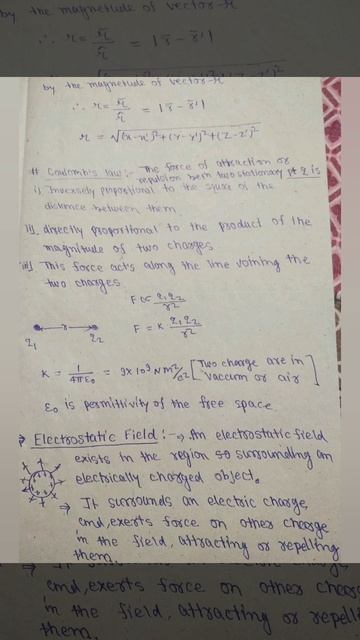 by the magnitude of vector-r
∴ r = r̄/r̂ = |r̄ - r̄'|
by the magnetude of vector-r
∴ r = r̄/r̂ = |r̄ - r̄'|
r = √(x-x')²+(y-y')²+(z-z')²
# Coulomb's law :- The force of attraction or
repulsion betn two stationary pt q is
i) Inversely proportional to the squre of the
distance between them.
ii) directly proportional to the product of the
magnitude of two charges
iii) This force acts along the line voining the
two charges.
F ∝ q1q2/r²
r
F = K q1q2/r²
q1 q2
K = 1/4πε0 = 9x10⁹ Nm²/c² [Two charge are in vaccum or air]
ε0 is permittivity of the free space.
⇒ Electrostatic Field :- → An electrostatic field
exists in the region so surrounding an
electrically charged object.
⇒ It surrounds an electric charge,
and, exerts force on other charge
in the field, attracting or repelling
them.
and, exerts force on other charge
in the field, attracting or repell
them.